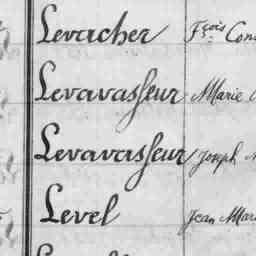 Levacher Fçois
Levavasseur Marie
Levavasseur Joseph
Level Jean Marie